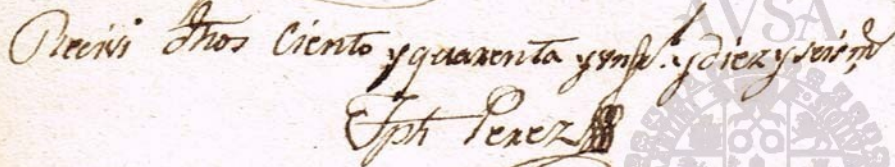 AVSA
Recivi dhos Ciento y quarenta y un r.^s y diez y seis m.^s
Jph Perez